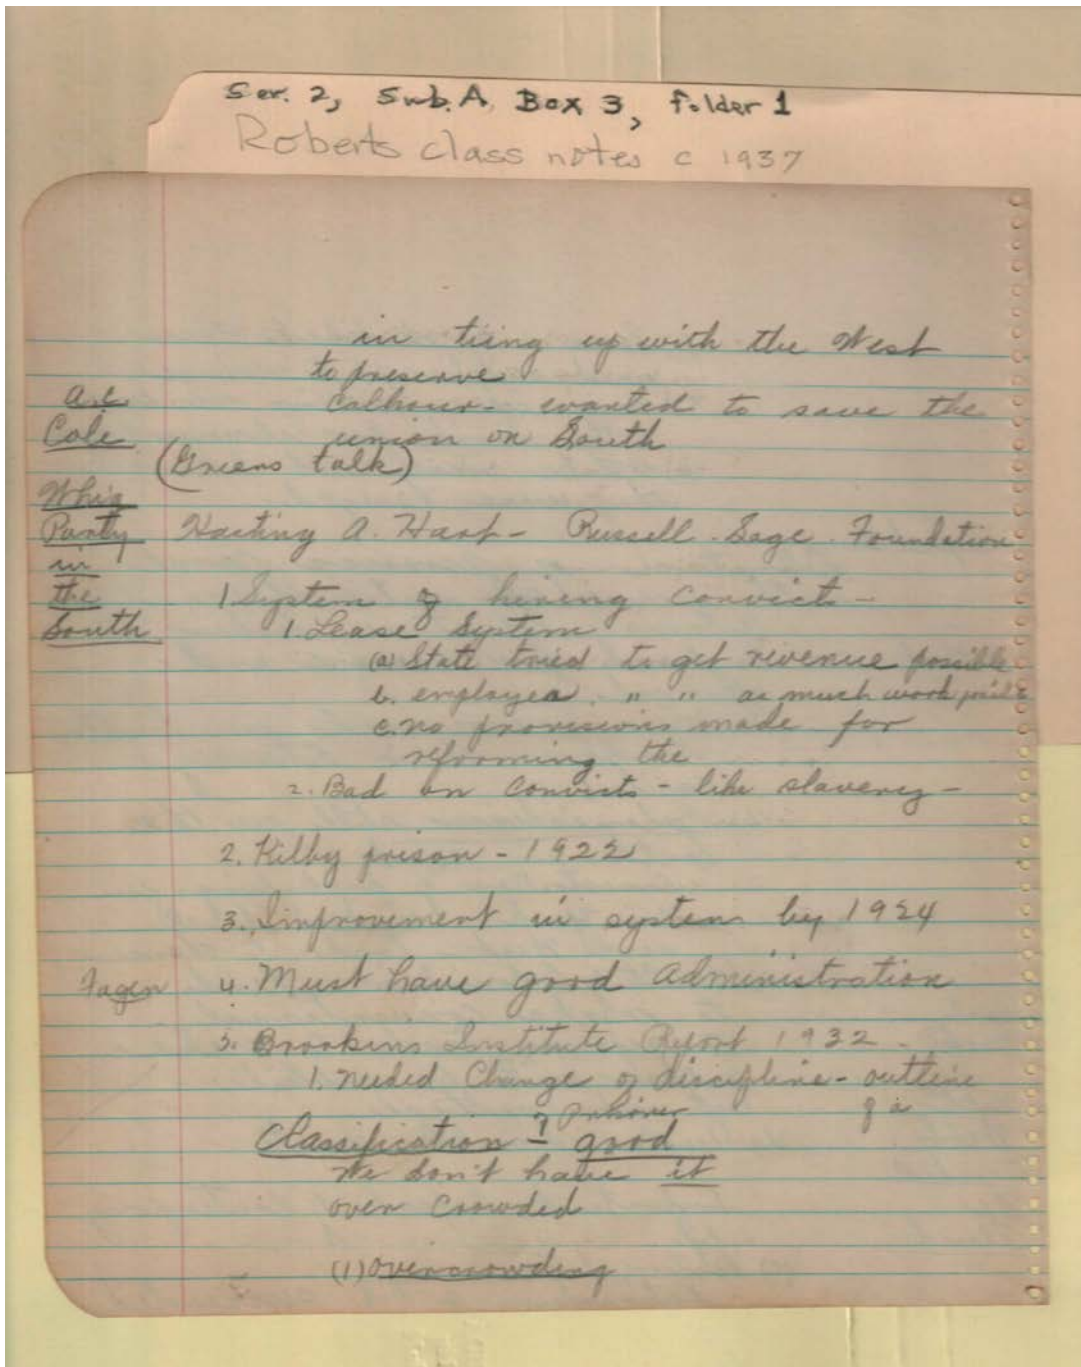 Ser. 2, Sub. A, Box 3, Folder 1
Roberts class notes c 1937
in tiing up with the West
to preserve
Calhoun - wanted to save the
union on South
(Greens talk)
A.C.
Cole
Whig
Party
in
the
South
Hasting A. Hart - Russell Sage Foundation
1 System of hiring convict -
1. Lease System
(a) State tried to get revenue possible
b. employea " " as much work
c. no provisions made for
reforming the
2. Bad on Convicts - like slavery -
2. Kilby prison - 1922
3. Improvement in system by 1924
Fagen
4. Must have good administration
5. Brookins Institute Report 1932 -
1. needed Change of discipline - outline
of a
Classification - good
of
We don't have it
over Crowded
(1) overcrowding